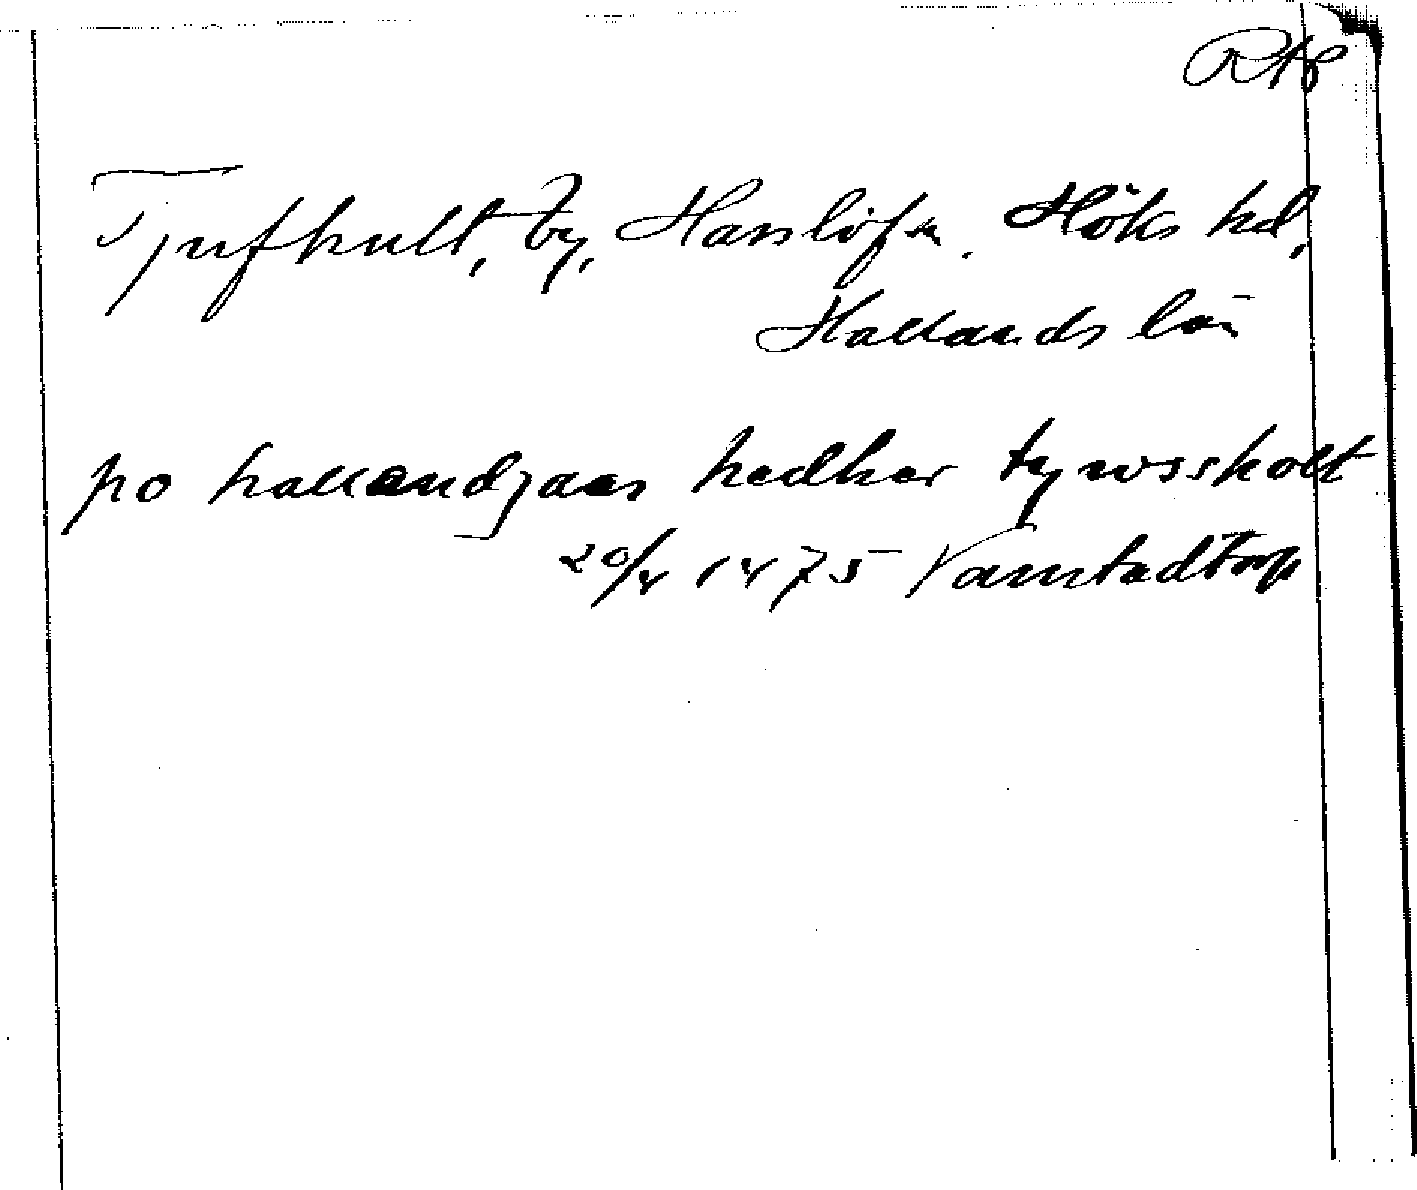 RAp
Tjufhult, by, Hasslöfs sn. Höks hd,
Hallands län
po hallandzaas hedher tywsskolt
20/4 1475 Vanstadtorp